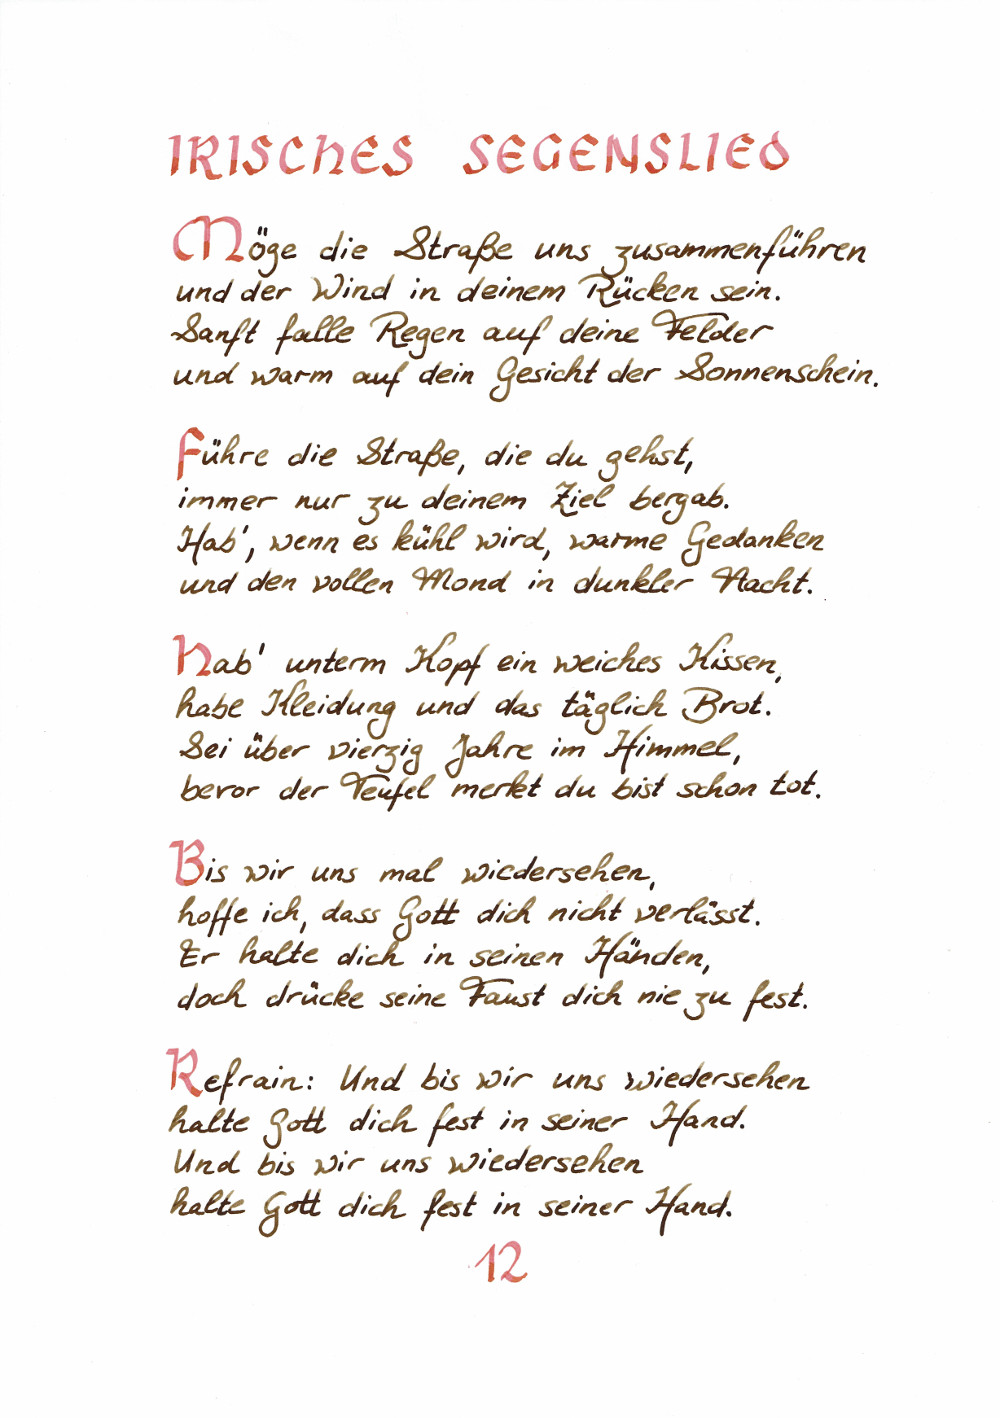 IRISCHES SEGENSLIED
Möge die Straße uns zusammenführen
und der Wind in deinem Rücken sein.
Sanft falle Regen auf deine Felder
und warm auf dein Gesicht der Sonnenschein.
Führe die Straße, die du gehst,
immer nur zu deinem Ziel bergab.
Hab', wenn es kühl wird, warme Gedanken
und den vollen Mond in dunkler Nacht.
Hab' unterm Kopf ein weiches Kissen,
habe Kleidung und das täglich Brot.
Sei über vierzig Jahre im Himmel,
bevor der Teufel merkt du bist schon tot.
Bis wir uns mal wiedersehen,
hoffe ich, dass Gott dich nicht verlässt.
Er halte dich in seinen Händen,
doch drücke seine Faust dich nie zu fest.
Refrain: Und bis wir uns wiedersehen
halte Gott dich fest in seiner Hand.
Und bis wir uns wiedersehen
halte Gott dich fest in seiner Hand.
12